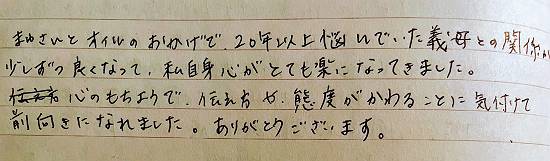 まゆさんと オイルの おかげで、20年以上 悩んでいた 義母との関係が
少しずつ 良くなって、私自身 心がとても楽になってきました。
心のもちようで、伝え方 や、態度がかわることに 気付けて
前向きになれました。ありがとうございます。